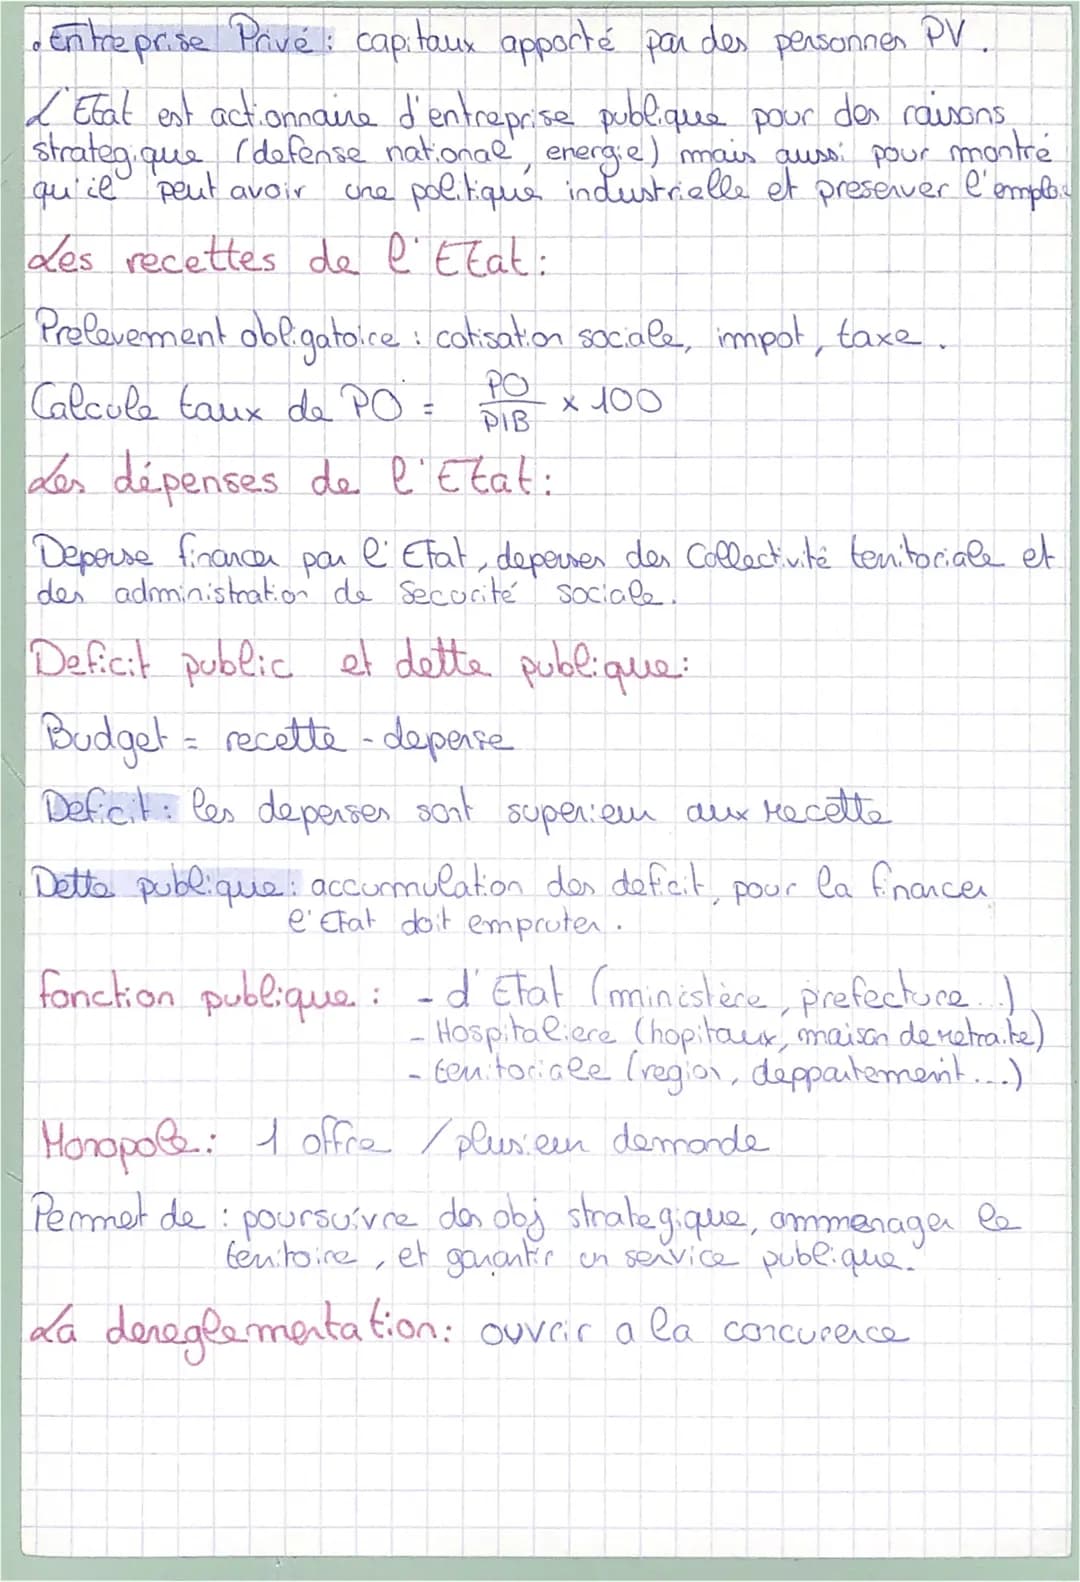 . Entreprise Privé : capitaux apporté par des personnes PV.
L'Etat est actionnaire d'entreprise publique pour des raisons
strategique (defense national, energie) mais aussi pour montré
qu'il peut avoir une politique industrielle et preserver l'emploi
Les recettes de l'Etat :
Prelevement obligatoire : cotisation sociale, impot, taxe.
Calcule taux de PO = PO/PIB x 100
Les dépenses de l'Etat :
Depense financer par l'Etat, depenses des Collectivité territoriale et
des administration de Securité sociale.
Deficit public et dette publique :
Budget = recette - depense
Deficit : les depenses sont superieur aux recette
Dette publique : accummulation des deficit, pour la financer
l'Etat doit empruter.
fonction publique : - d'Etat (ministère, prefecture...)
- Hospitaliere (hopitaux, maison de retraite)
- territoriale (region, deppartement...)
Monopole : 1 offre / plusieur demande
Permet de : poursuivre des obj strategique, ammenager le
territoire, et garantir un service publique.
La dereglementation : ouvrir a la concurence